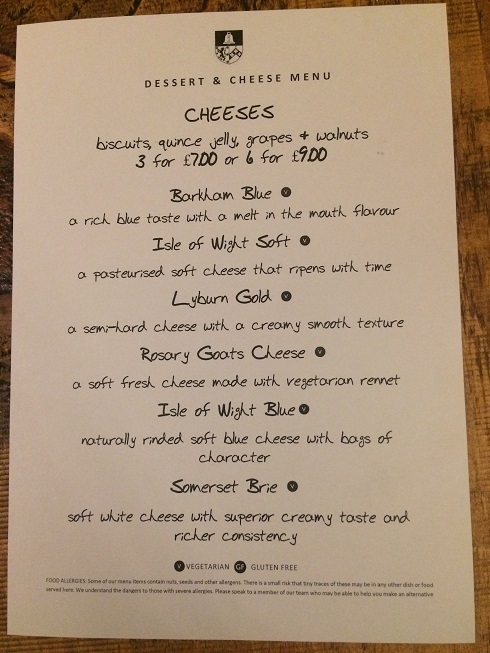 DESSERT & CHEESE MENU
CHEESES
biscuits, quince jelly, grapes & walnuts
3 for £7.00 or 6 for £9.00
Barkham Blue V
a rich blue taste with a melt in the mouth flavour
Isle of Wight Soft V
a pasteurised soft cheese that ripens with time
Lyburn Gold V
a semi-hard cheese with a creamy smooth texture
Rosary Goats Cheese V
a soft fresh cheese made with vegetarian rennet
Isle of Wight Blue V
naturally rinded soft blue cheese with bags of
character
Somerset Brie V
soft white cheese with superior creamy taste and
richer consistency
V VEGETARIAN GF GLUTEN FREE
FOOD ALLERGIES: Some of our menu items contain nuts, seeds and other allergens. There is a small risk that tiny traces of these may be in any other dish or food
served here. We understand the dangers to those with severe allergies. Please speak to a member of our team who may be able to help you make an alternative